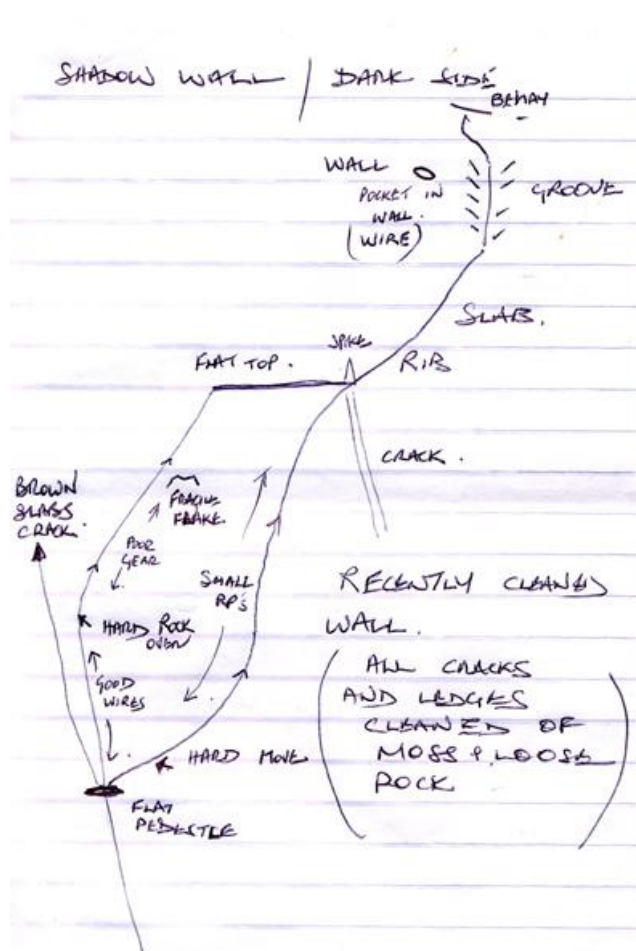 SHADOW WALL / DARK SIDE
BELAY
WALL
POCKET IN
WALL.
(WIRE)
GROOVE
SLAB.
SPIKE
FLAT TOP.
RIB
CRACK.
BROWN
SLABS
CRACK.
FRAGILE
FLAKE.
POOR
GEAR
SMALL
RP'S
HARD ROCK
OVER
GOOD
WIRES
HARD MOVE
FLAT
PEDESTLE
RECENTLY CLEANED
WALL.
(ALL CRACKS
AND LEDGES
CLEANED OF
MOSS & LOOSE
ROCK)